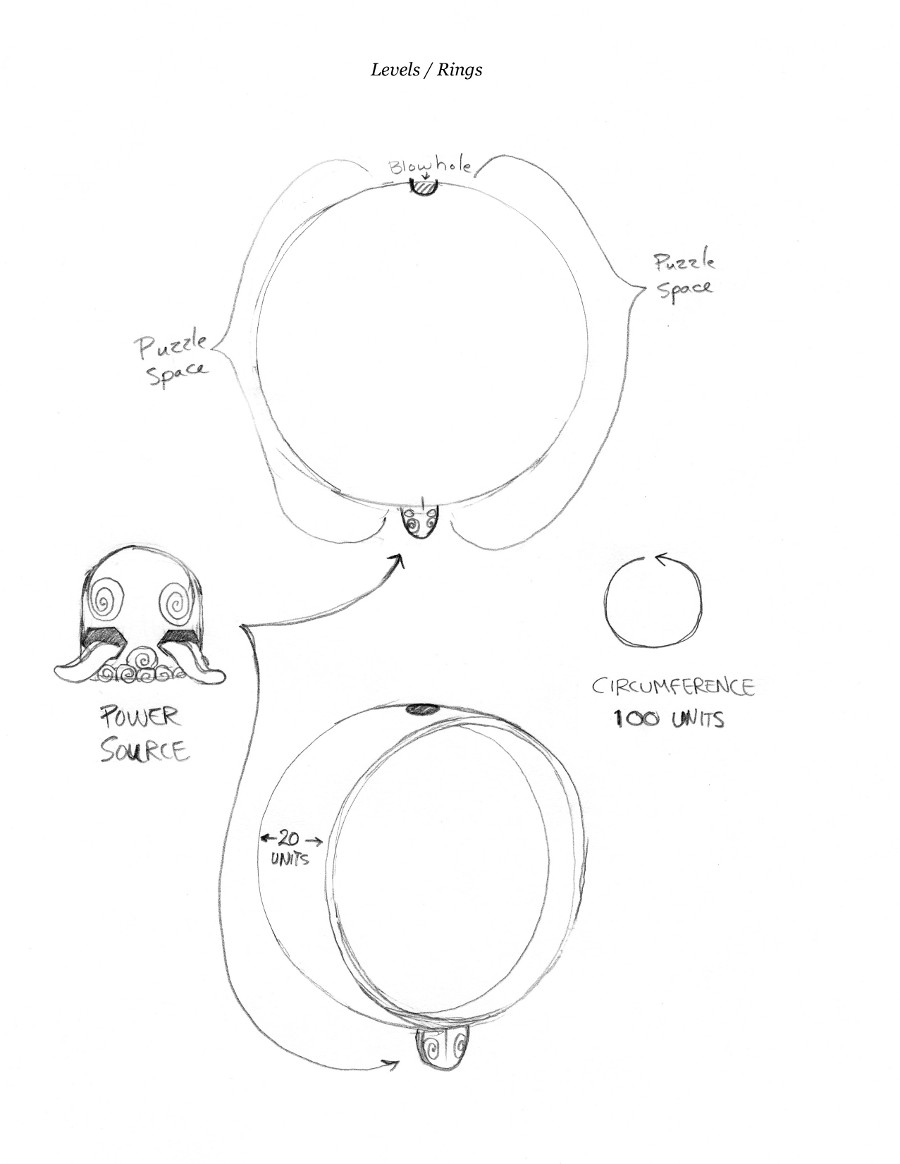 Levels / Rings
Blowhole
Puzzle
Space
Puzzle
Space
POWER
SOURCE
CIRCUMFERENCE
100 UNITS
20
UNITS